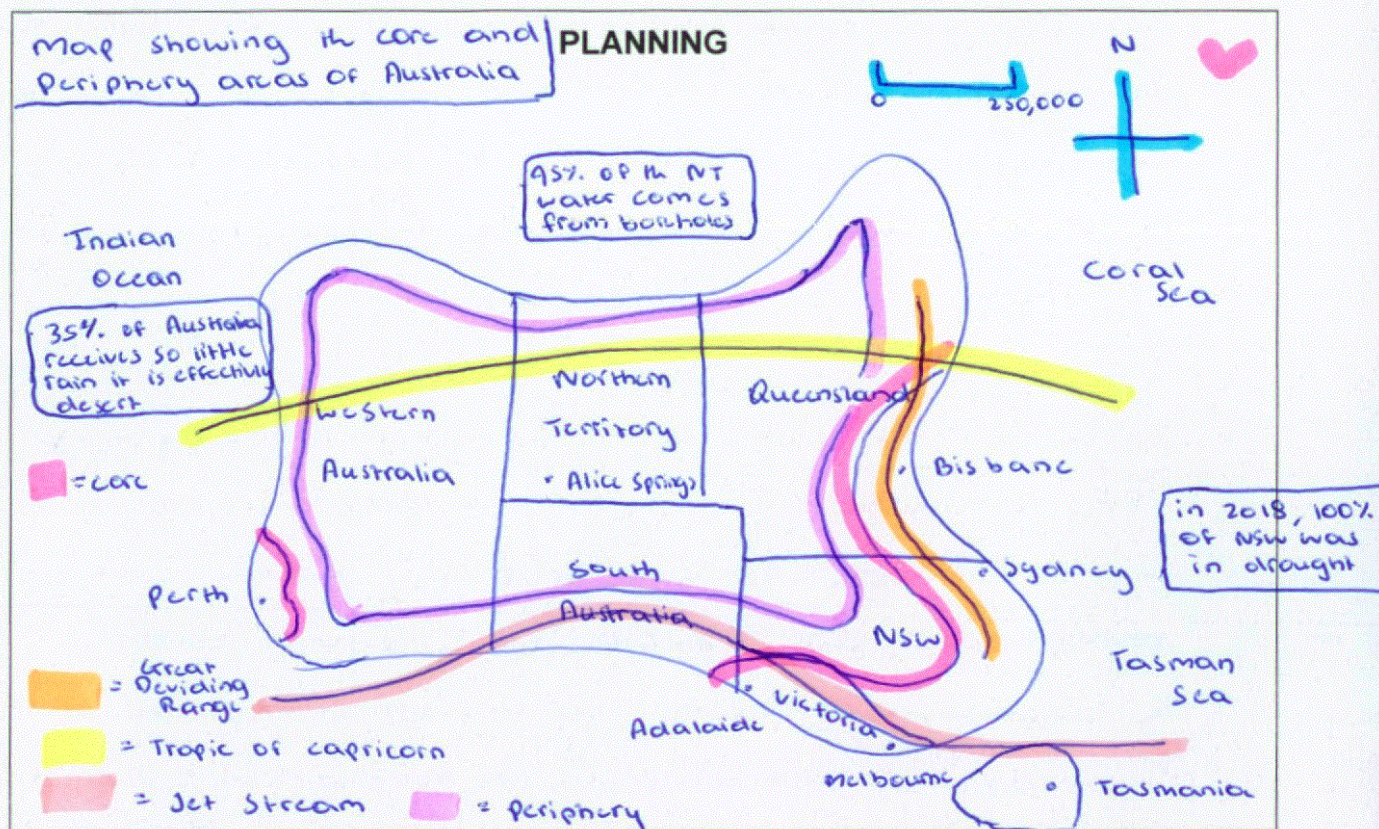 Map showing th core and
Periphery areas of Australia
PLANNING
0 250,000
N
95% of th NT
water comes
from boreholes
Indian
Ocean
Coral
Sea
35% of Australia
receives so little
rain it is effectivly
desert
Northern
Territory
• Alice Springs
Queensland
Western
Australia
= core
Bisbane
in 2018, 100%
of NSW was
in drought
Perth
South
Australia
Sydney
NSW
Tasman
Sea
= Great
Deviding
Range
Adalaide
Victoria
= Tropic of capricorn
Melbourne
Tasmania
= Jet Stream
= Periphery